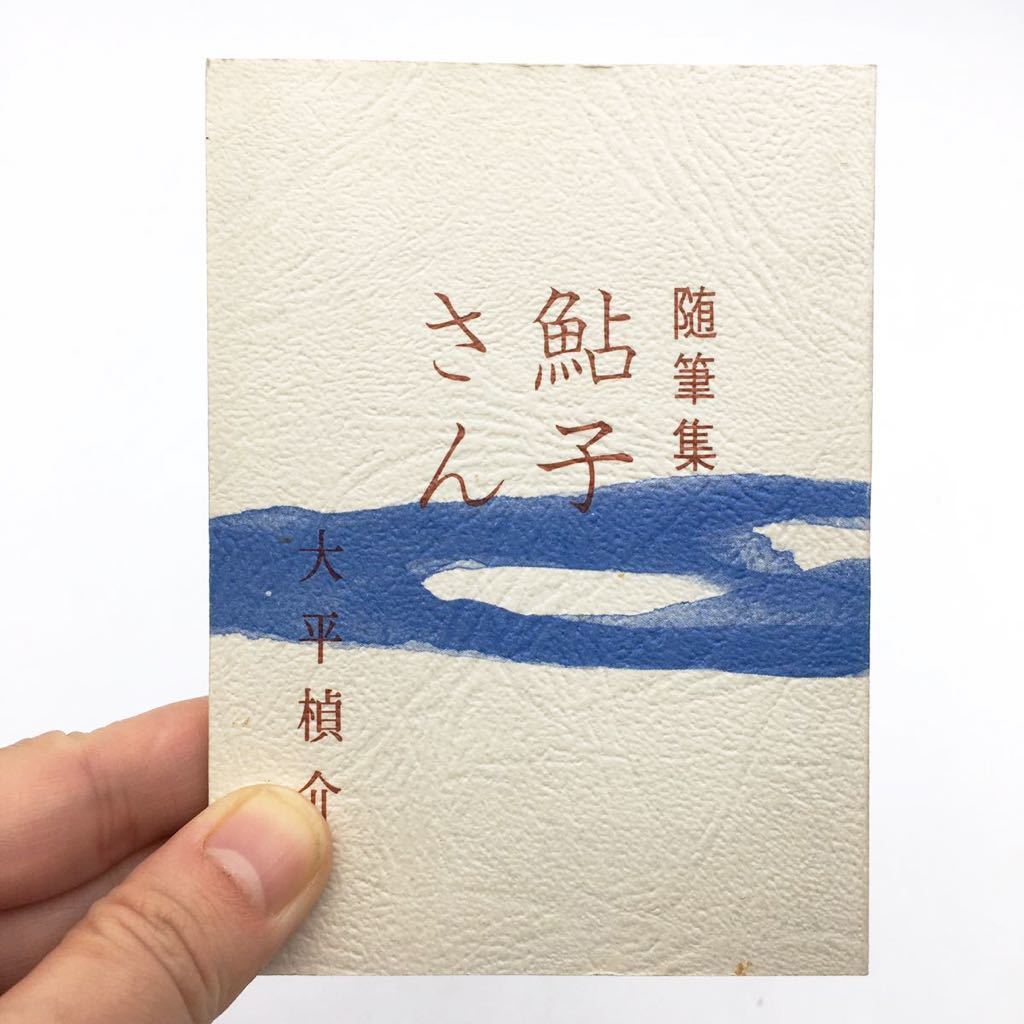 随筆集
鮎子
さん
大平楨介